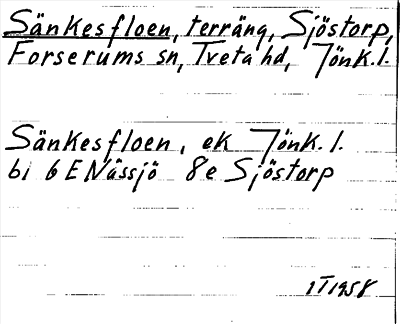 Sänkesfloen, terräng, Sjöstorp,
Forserums sn, Tveta hd, Jönk. l.
Sänkesfloen, ek Jönk. l.
bl 6 E Nässjö 8e Sjöstorp
1 I 1958